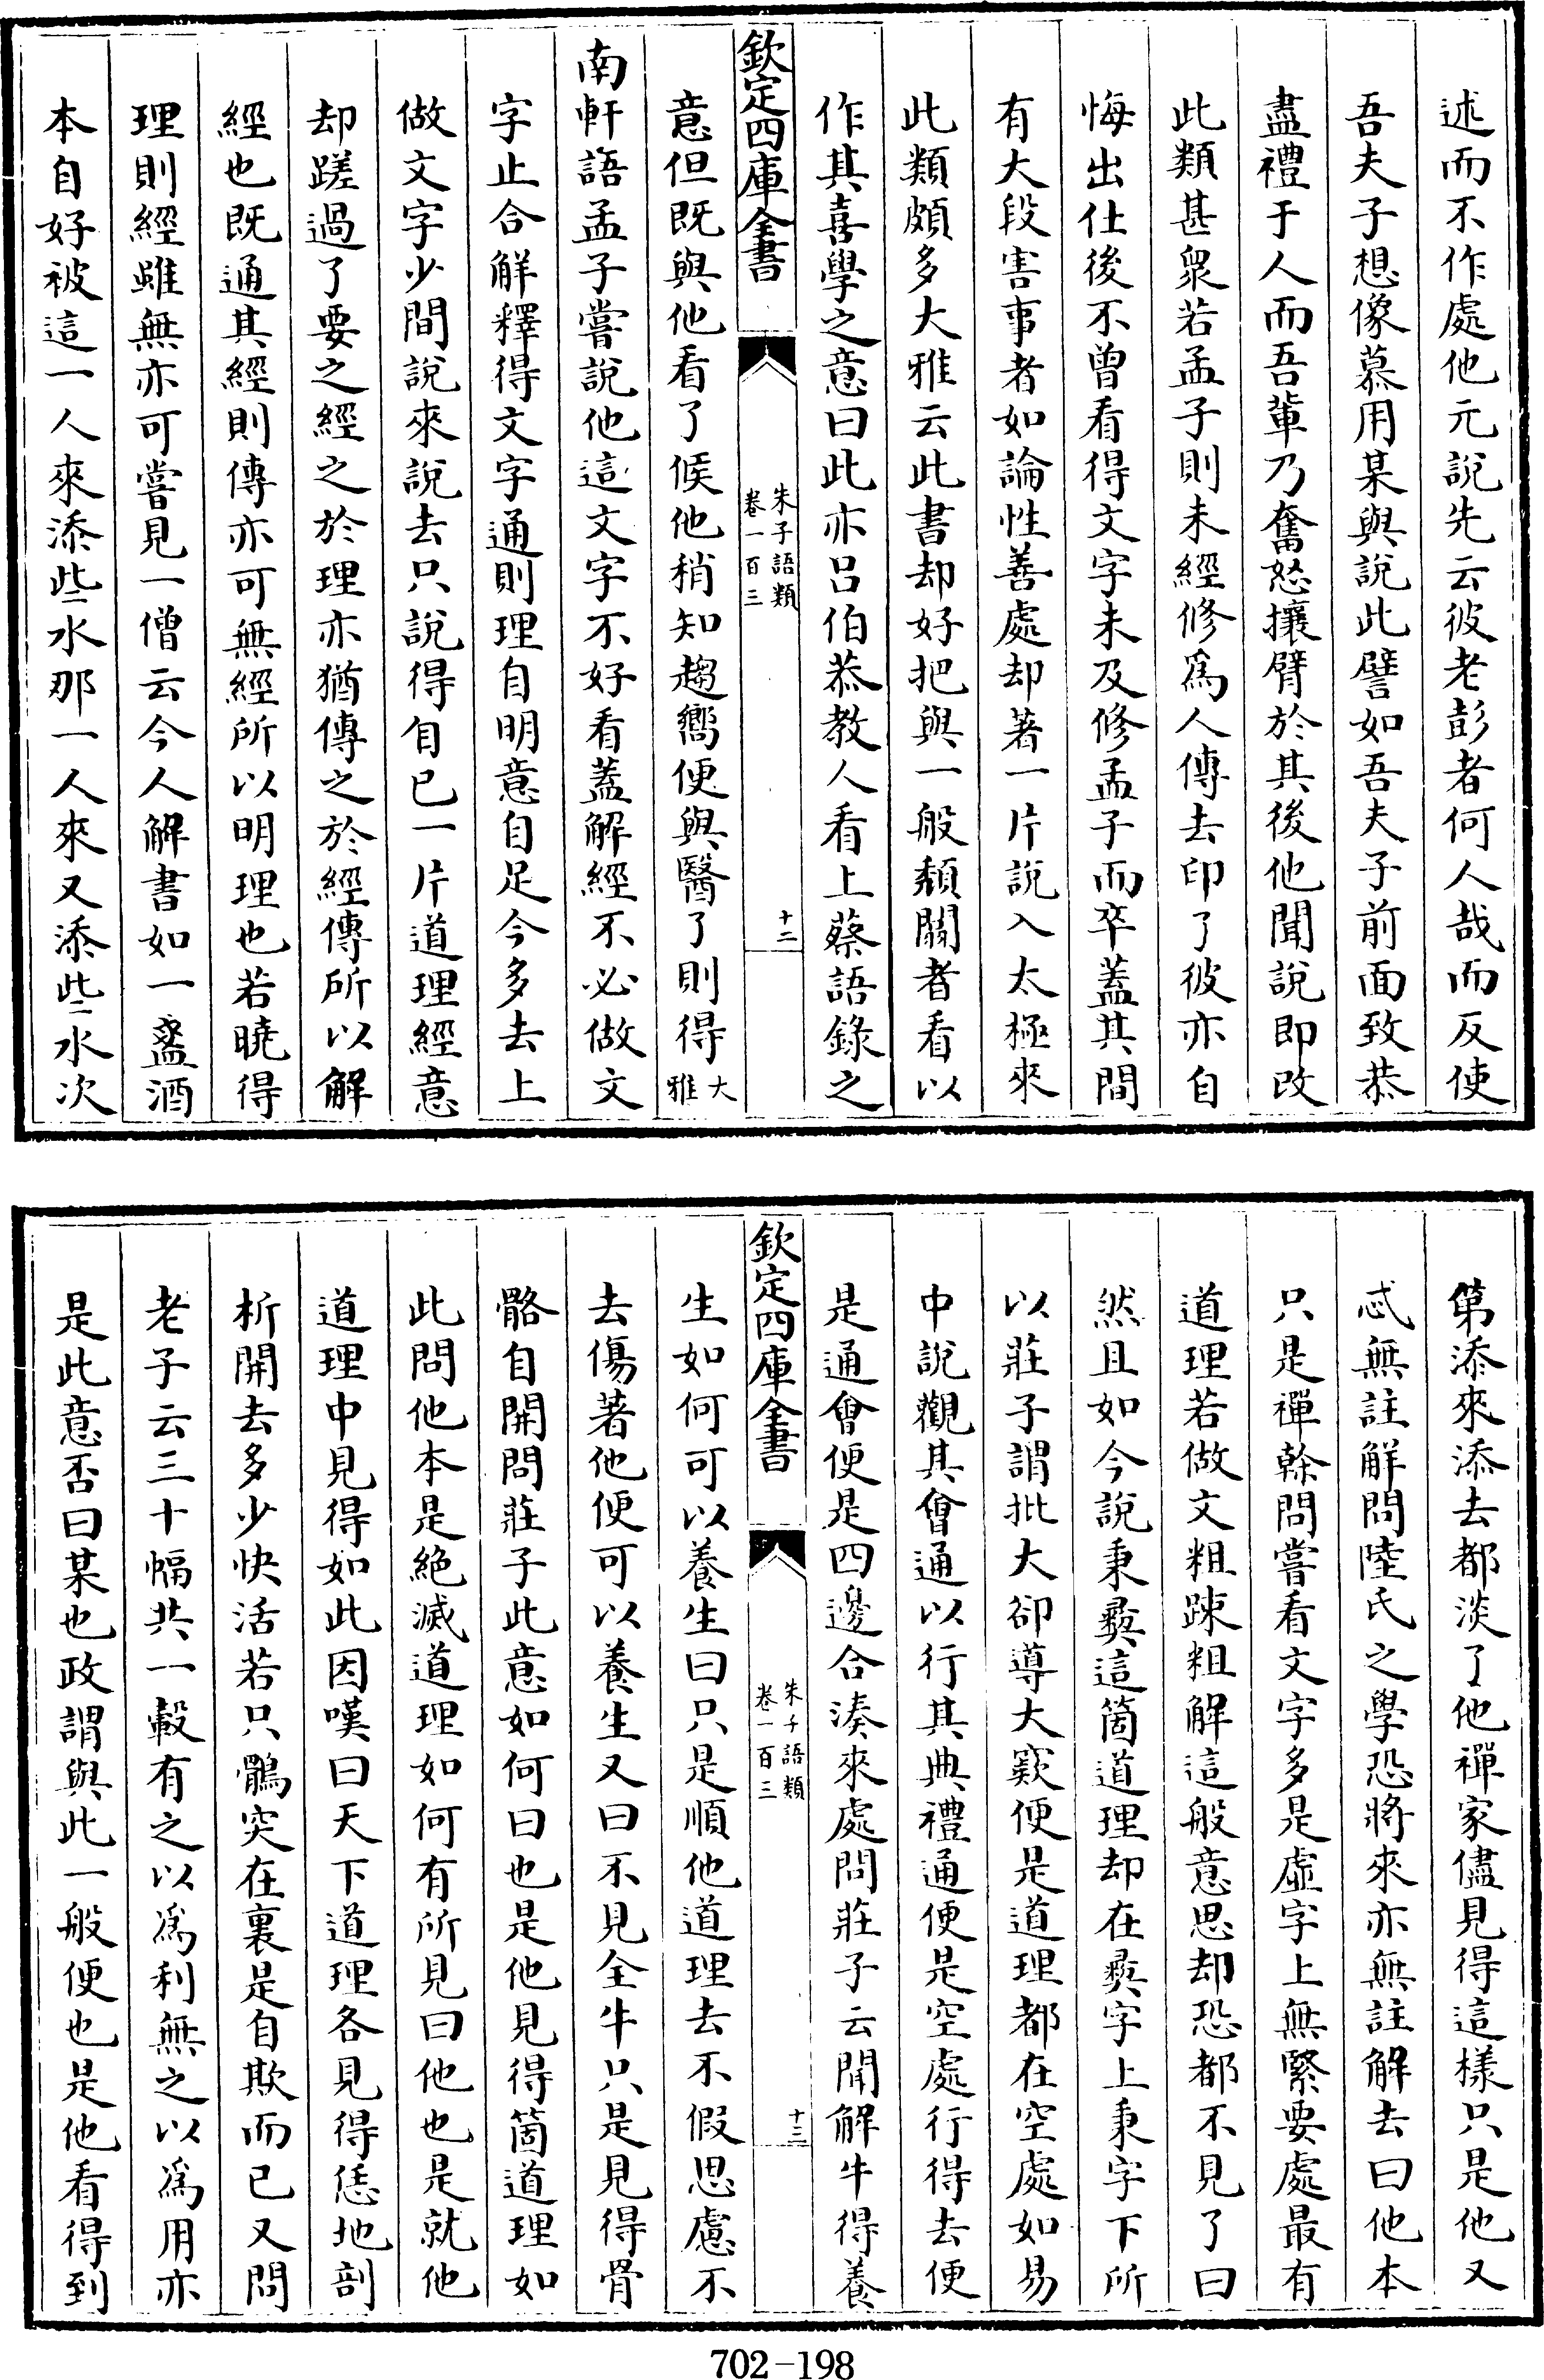 述而不作處他元説先云彼老彭者何人哉而反使
吾夫子想像慕用某與説此譬如吾夫子前面致恭
盡禮于人而吾輩乃奮怒攘臂於其後他聞説即改
此類甚衆若孟子則未經修爲人傳去印了彼亦自
悔出仕後不曾看得文字未及修孟子而卒蓋其間
有大段害事者如論性善處却著一片説入太極來
此類頗多大雅云此書却好把與一般頽闒者看以
作其喜學之意曰此亦吕伯恭教人看上蔡語錄之
欽定四庫全書
朱子語類
卷一百三
十二
意但既與他看了候他稍知趨嚮便與醫了則得大雅
南軒語孟子嘗説他這文字不好看蓋解經不必做文
字止合解釋得文字通則理自明意自足今多去上
做文字少間説來説去只説得自己一片道理經意
却蹉過了要之經之於理亦猶傳之於經傳所以解
經也既通其經則傳亦可無經所以明理也若曉得
理則經雖無亦可嘗見一僧云今人解書如一盞酒
本自好被這一人來添些水那一人來又添些水次
第添來添去都淡了他禪家儘見得這樣只是他又
忒無註解問陸氏之學恐將來亦無註解去曰他本
只是禪榦問嘗看文字多是虚字上無緊要處最有
道理若做文粗踈粗解這般意思却恐都不見了曰
然且如今説秉彝這箇道理却在彝字上秉字下所
以莊子謂批大郤導大窾便是道理都在空處如易
中説觀其會通以行其典禮通便是空處行得去便
是通會便是四邊合湊來處問莊子云聞解牛得養
欽定四庫全書
朱子語類
卷一百三
十三
生如何可以養生曰只是順他道理去不假思慮不
去傷著他便可以養生又曰不見全牛只是見得骨
骼自開問莊子此意如何曰也是他見得箇道理如
此問他本是絶滅道理如何有所見曰他也是就他
道理中見得如此因嘆曰天下道理各見得恁地剖
析開去多少快活若只鶻突在裏是自欺而已又問
老子云三十幅共一轂有之以爲利無之以爲用亦
是此意否曰某也政謂與此一般便也是他看得到
702-198